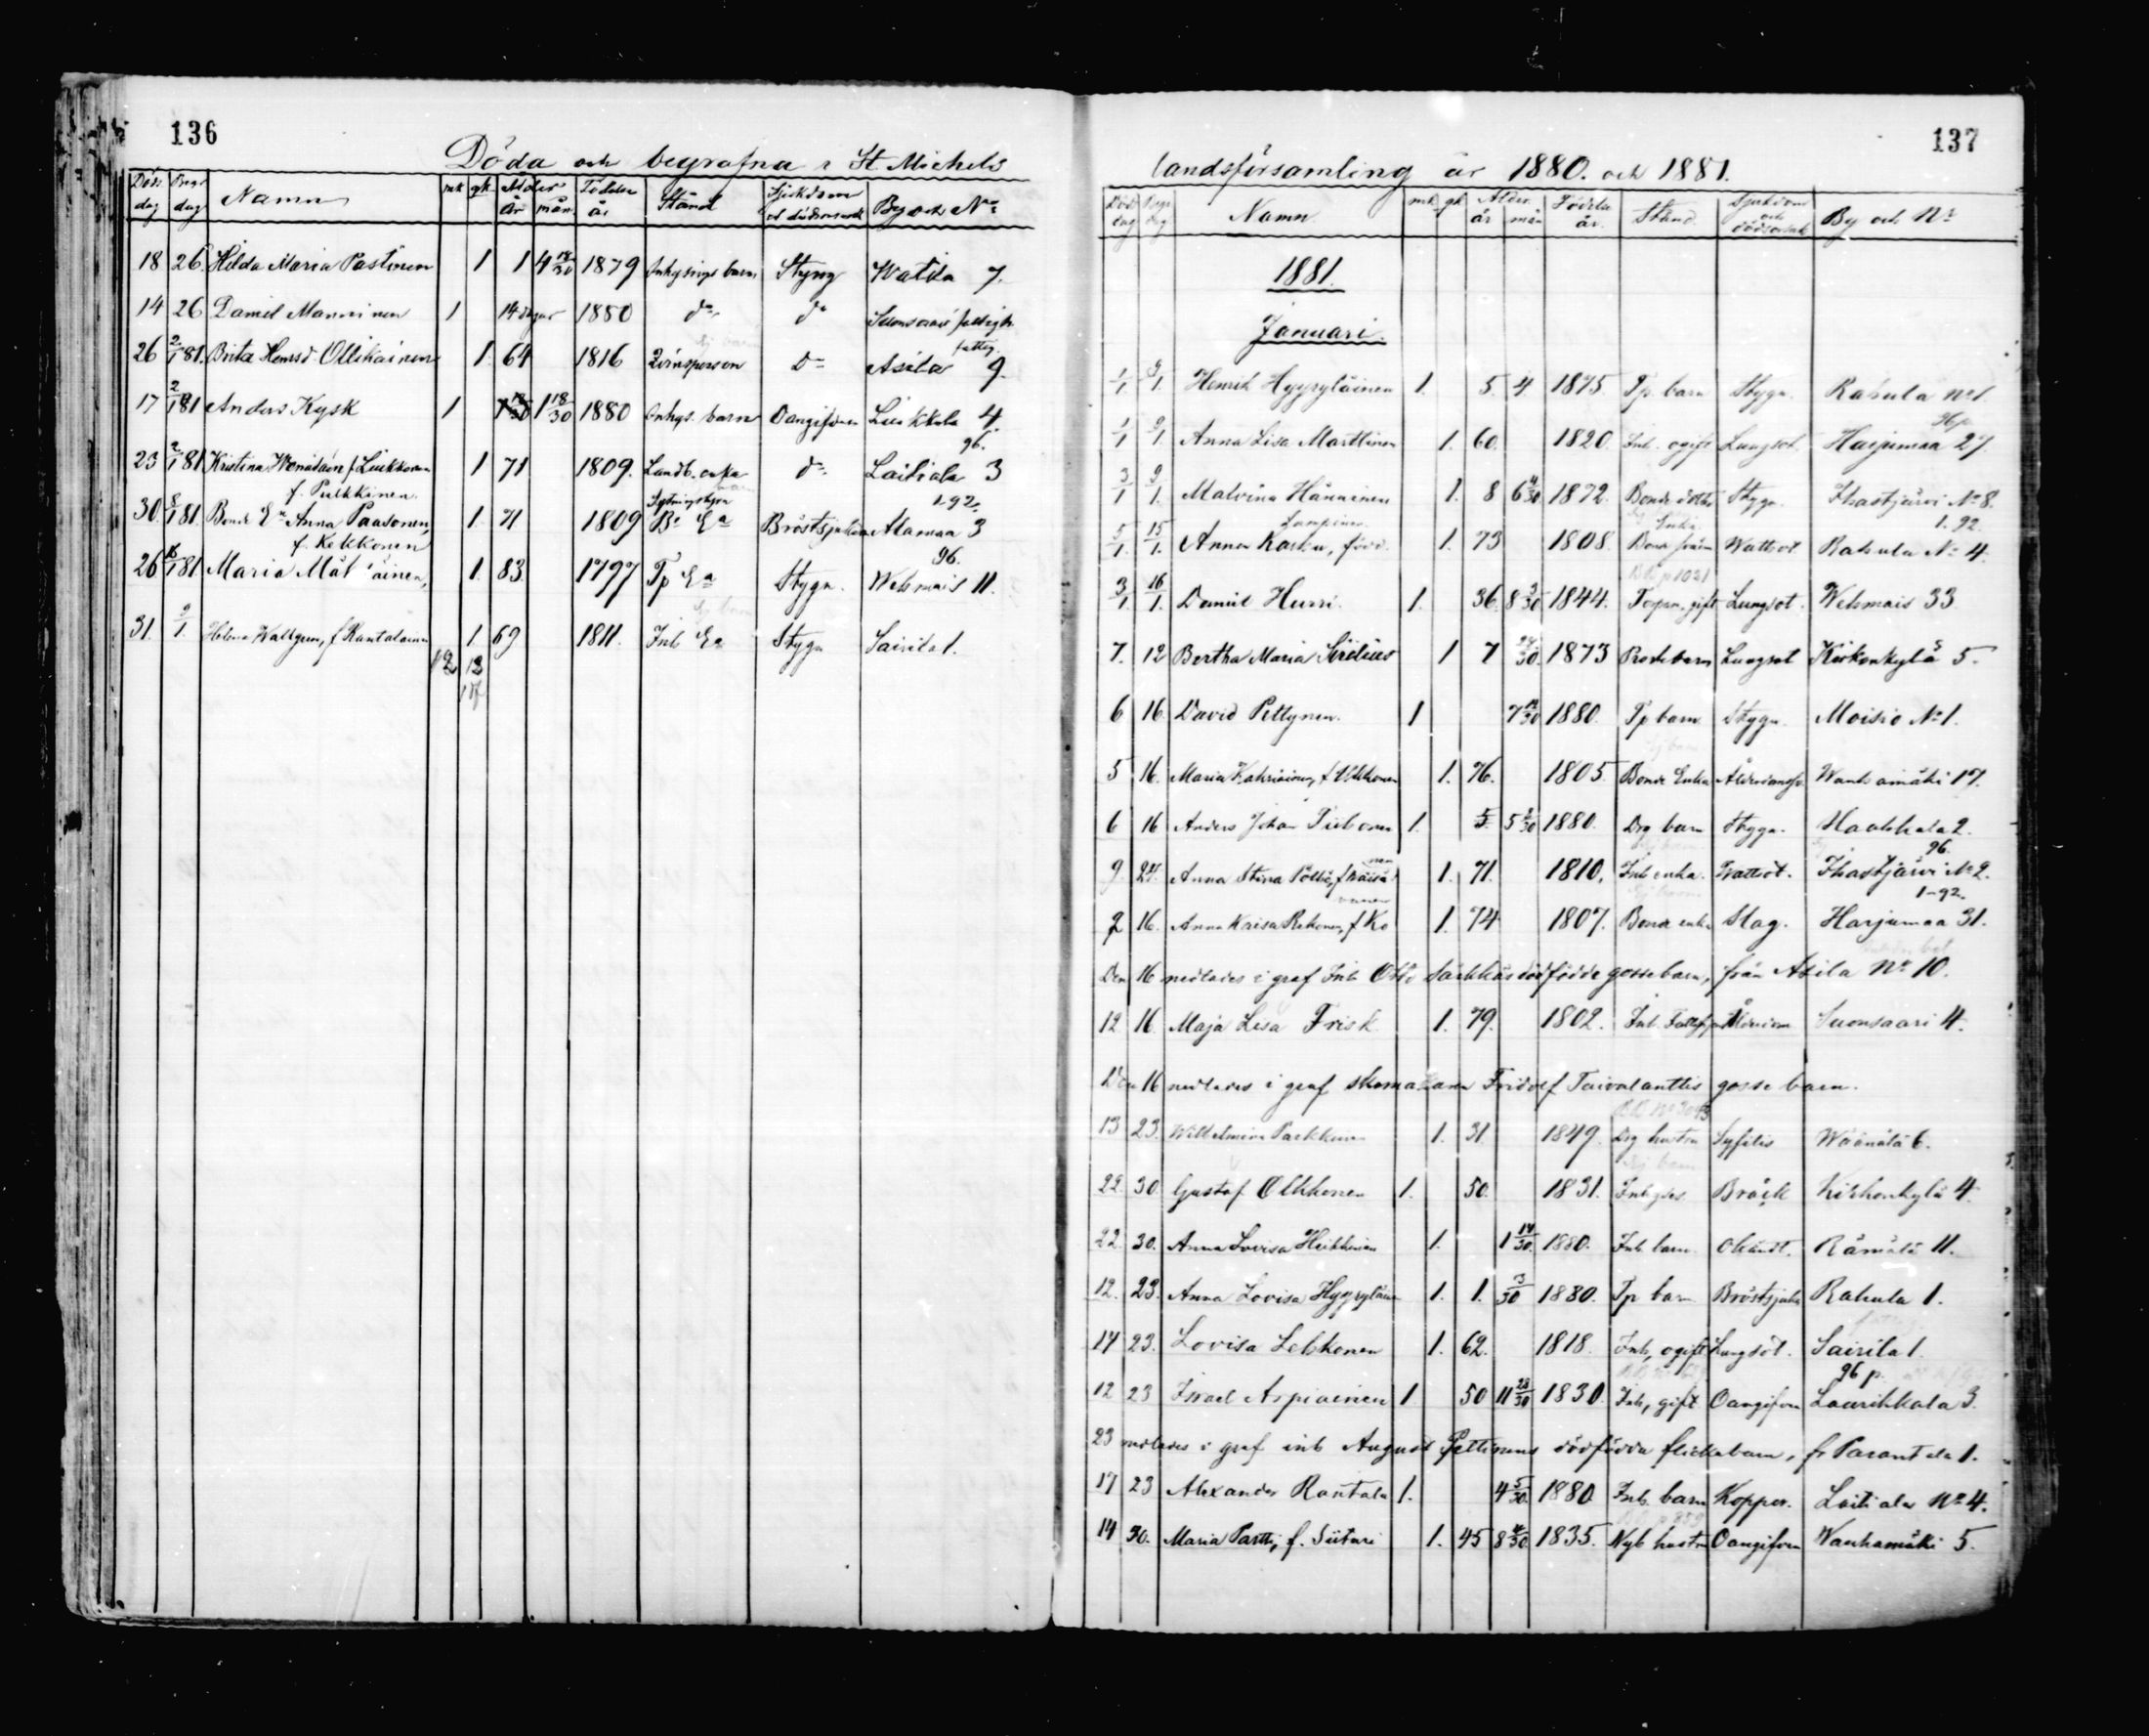 136
Döda och begrafna i St Michels
Döds dag Begr dag Namn mk qk Ålder år mån Födelse år Stånd Sjukdom och dödsorsak By och No
18 26 Hilda Maria Pastinen 1 1 4 1879 Inhysings barn Styng Watila 7.
14 26 Daniel Manninen 1 14 dagar 1880 do do Suonsaari fattigh.
fattig.
26 2/1 81. Brita Henrsd. Ollikainen 1. 64 1816 Qvinsperson Do Asila 9.
17 2/1 81 Anders Kysk 1 1 18/30 1880 Inhys. barn Oangifven Liukkola 4.
96.
23 2/1 81 Kristina f. Liukkonen 1 71 1809. Landb. enka do Laitiala 3
f. Pulkkinen. 1-92
30. 81. Bonde Ea Anna Paasonen, 1. 71 1809 Ba Ea Bröstsjukdom Alamaa 3
f. Kekkonen 96.
26 81 Maria Mät äinen, 1. 83. 1797 Tp Ea Stygn. Wehmais 11.
31. 9/1. Helena Wallgren, f Rantalainen 1. 69 1811. Inh Ea Stygn Sairila 1.
12 12
137
landsförsamling år 1880. och 1881.
Död dag Begr dag Namn mk qk Ålder år mån Födelse år. Stånd. Sjukdom och dödsorsak By och No
1881.
Januari.
1/1 9/1 Henrik Hyyryläinen 1. 5. 4 1875. Tp. barn Stygn. Rahula No 1
96 p
1/1 9/1. Anna Lisa Marttinen 1. 60. 1820. Inh. ogift Lungsot. Harjumaa 27.
3/1 9/1. Malvina Hänninen 1. 8 6 4/30 1872. Bonde dotter Stygn. Ihastjärvi No 8.
Lampinen. Enka 1. 92.
5/1. 15/1. Anna Kaska, född. 1. 73 1808. Bonde Wattsot. Rahula No 4.
BB p 1021
3/1. 16/1. Daniel Hurri. 1. 36. 8 3/30 1844. Torpn. gift Lungsot. Wehmais 33
7. 12 Bertha Maria Sirelius 1 7 24/30. 1873 Prosts barn Lungsot Kirkonkylä 5.
6 16. David Pettynen. 1 7 1880. Tp barn Stygn. Moisio No 1.
5 16. Maria Kahriainen, f. Ukkonen 1. 76. 1805. Bonde Enka Ålderdomsv. Wanhamäki 17.
6 16 Anders Johan Tiihonen 1. 5 5 1880. Drg barn Stygn. Haukkala 2.
nen 96.
9. 27. Anna Stina Pöllä, f. Häisä 1. 71. 1810. Inh enka. Wattsot. Ihastjärvi No 2.
1-92.
2 16. Anna Kaisa Rekonen, f Ko 1. 74 1807. Bonde enka Slag. Harjumaa 31.
Den 16 nedlades i graf Inh Otto Särkkäs dödfödde gossebarn, från Asila No 10.
12 16. Maja Lisa Frisk 1. 79. 1802. Inh. Fattighjon Ålderdom Suonsaari 4.
Den 16 nedlades i graf skomakaren Fridolf Taivalanttis gosse barn.
BB No 3043
13 23. Wilhelmina Parkkinen 1. 31 1849. Drg hustru Syfilis Wäänälä 6.
22. 30 Gustaf Olkkonen 1. 50. 1831. Inhyses Bråck Kirkonkylä 4.
22. 30. Anna Lovisa Heikkinen 1. 1 14/30. 1880. Inh barn. Okändt. Rämälä 11.
12. 23. Anna Lovisa Hyyryläinen 1. 1. 3/30 1880. Tp barn Bröstsjuka Rahula 1.
14 23. Lovisa Lehkonen 1. 62. 1818. Inh, ogift Lungsot. Sairila 1.
96 p.
12 23 Israel Arpiainen 1 50 11 28/30 1830. Inh, gift Oangifven Laurikkala 3.
23 nedlades i graf inh August Pettinens dödfödda flickebarn, fr Parantala 1.
17 23 Alexander Rantala 1. 4 5/30. 1880 Inh. barn Koppor. Laitiala No 4.
14 30. Maria Partti, f. Siitari 1. 45 8 1835. Nyb hustru Oangifven Wanhamäki 5.